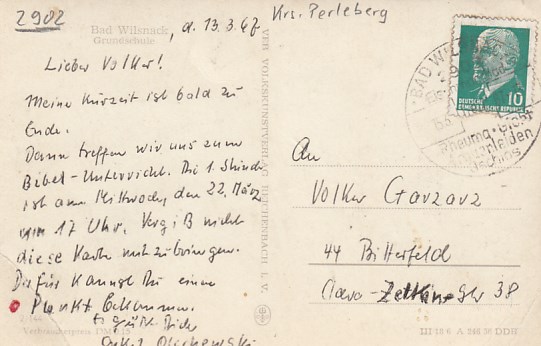 2902
Krs. Perleberg
Bad Wilsnack
Grundschule
d. 13.3.67
Lieber Volker!
Meine Kurzeit ist bald zu
Ende.
Dann treffen wir uns zum
Bibel-Unterricht. Die 1. Stunde
ist am Mittwoch, den 22. März
um 17 Uhr. Vergiß nicht
diese Karte mitzubringen.
Dafür kannst Du einen
Punkt bekommen.
Es grüßt Dich
VEB VOLKSKUNSTVERLAG REICHENBACH i. V.
BAD WILSNACK
Rheuma • Gicht
Frauenleiden
Ischias
DEUTSCHE
DEMOKRATISCHE REPUBLIK
10
An
Volker Garzarz
44 Bitterfeld
Clara-Zetkin-Str 38
Verbraucherpreis DM 0,15
III 18 6 A 246 56 DDR